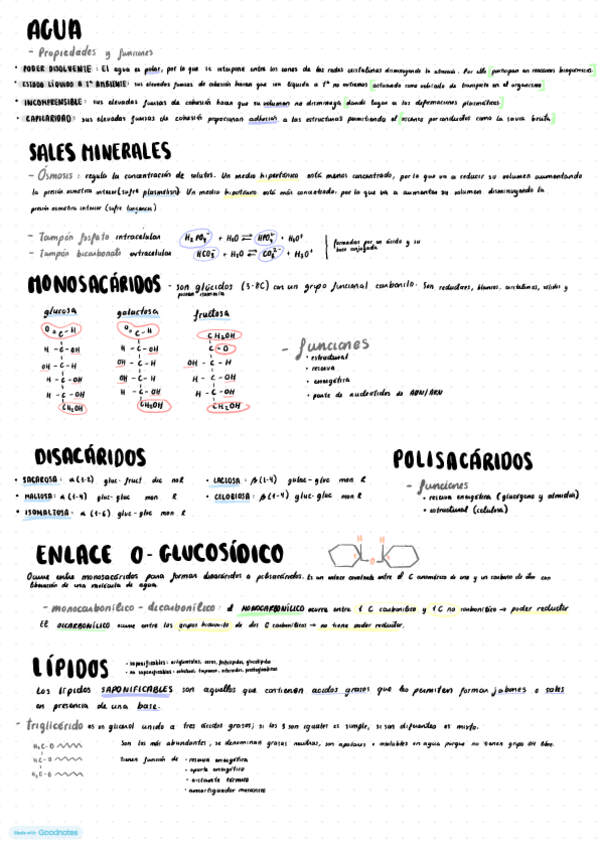 AGUA
- Propiedades y funciones
• PODER DISOLVENTE: El agua es polar, por lo que se interpone entre los iones de las redes cristalinas disminuyendo la atracción. Por ello participan en reacciones bioquímicas.
• ESTADO LÍQUIDO A Tª AMBIENTE: sus elevadas fuerzas de cohesión hacen que sea líquida a Tª no extremas actuando como vehículo de transporte en el organismo
• INCOMPRENSIBLE: sus elevadas fuerzas de cohesión hacen que su volumen no disminuya dando lugar a las deformaciones plasmáticas
• CAPILARIDAD: sus elevadas fuerzas de cohesión propocionan adhesión a las estructuras permitiendo el ascenso por conductos como la savia bruta
SALES MINERALES
- Ósmosis: regula la concentración de solutos. Un medio hipertónico está menos concentrado, por lo que va a reducir su volumen aumentando
la presión osmótica interior (sufre plasmólisis). Un medio hipotónico está más concentrado: por lo que va a aumentar su volumen disminuyendo la
presión osmótica interior (sufre turgencia)
- Tampón fosfato intracelular H₂PO₄ + H₂O ⇌ HPO₄ + H₃O⁺
- Tampón bicarbonato extracelular HCO₃⁻ + H₂O ⇌ CO₃²⁻ + H₃O⁺
formados por un ácido y su
base conjugada
MONOSACÁRIDOS - son glúcidos (3-8C) con un grupo funcional carbonilo. Son reductores, blancos, cristalinos, solubles y
poseen isomería
glucosa galactosa fructosa
O C - H O C - H CH₂OH
H - C - OH H - C - OH C = O
OH - C - H OH - C - H OH - C - H
H - C - OH OH - C - H H - C - OH
H - C - OH H - C - OH H - C - OH
CH₂OH CH₂OH CH₂OH
- funciones
• estructural
• reserva
• energética
• parte de nucleótidos de ADN/ARN
DISACÁRIDOS
• SACAROSA: α(1-2) gluc-fruct dic noR
• MALTOSA: α(1-4) gluc-gluc mon R
• ISOMALTOSA: α(1-6) gluc-gluc mon R
• LACTOSA: β(1-4) galac-gluc mon R
• CELOBIOSA: β(1-4) gluc-gluc mon R
POLISACÁRIDOS
- funciones
• reserva energética (glucógeno y almidón)
• estructural (celulosa)
ENLACE O-GLUCOSÍDICO
H H
O
Ocurre entre monosacáridos para formar disacáridos o polisacáridos. Es un enlace covalente entre el C anomérico de uno y un carbono de otro con
liberación de una molécula de agua
- monocarbonílico - dicarbonílico: el MONOCARBONÍLICO ocurre entre 1 C carbonílico y 1 C no carbonílico → poder reductor
El DICARBONÍLICO ocurre entre los grupos de dos C carbonílicos → no tiene poder reductor.
LÍPIDOS
• saponificables: acilgliceroles, ceras, fosfolípidos, glucolípidos
• no saponificables: esteroides, prostaglandinas
Los lípidos SAPONIFICABLES son aquellos que contienen ácidos grasos que les permiten formar jabones o sales
en presencia de una base.
- triglicérido es un glicerol unido a tres ácidos grasos; si los 3 son iguales es simple, si son diferentes es mixto.
H₂C-O
HC-O
H₂C-O
Son los más abundantes, se denominan grasas neutras, son apolares e insolubles en agua porque no tienen grupo OH libre.
Tienen función de - reserva energética
• aporte energético
• aislante térmico
• amortiguador mecánico
Made with Goodnotes